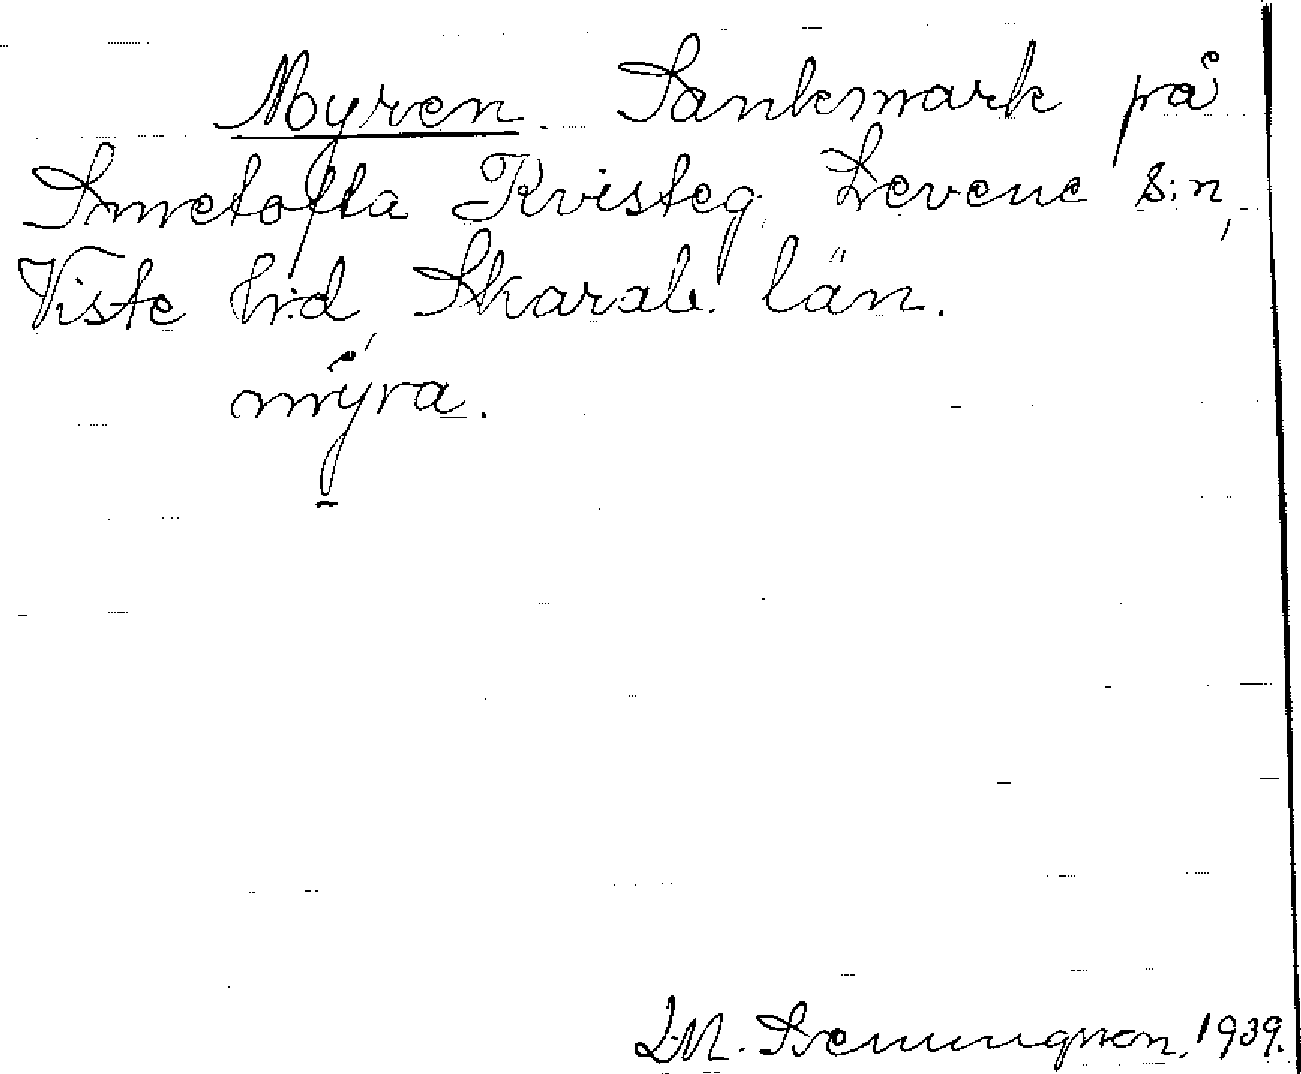 Myren Sankmark på
Smetofta Kvisteg. Levene s:n,
Viste h:d, Skarab. län.
mýra.
L.M. Svenungsson, 1939.